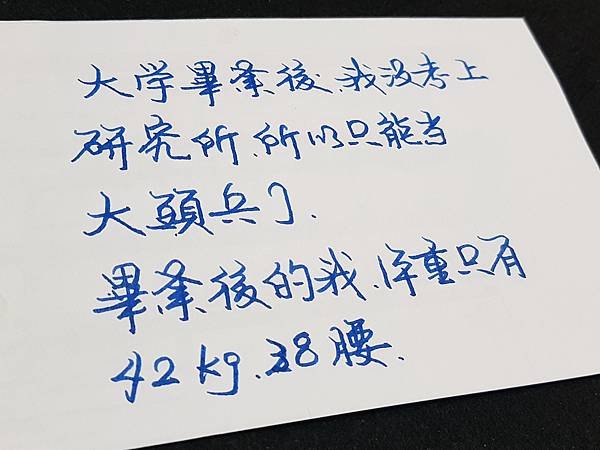 大学畢業後、我沒考上
研究所、所以只能当
大頭兵了.
畢業後的我、体重只有
42kg、28腰.